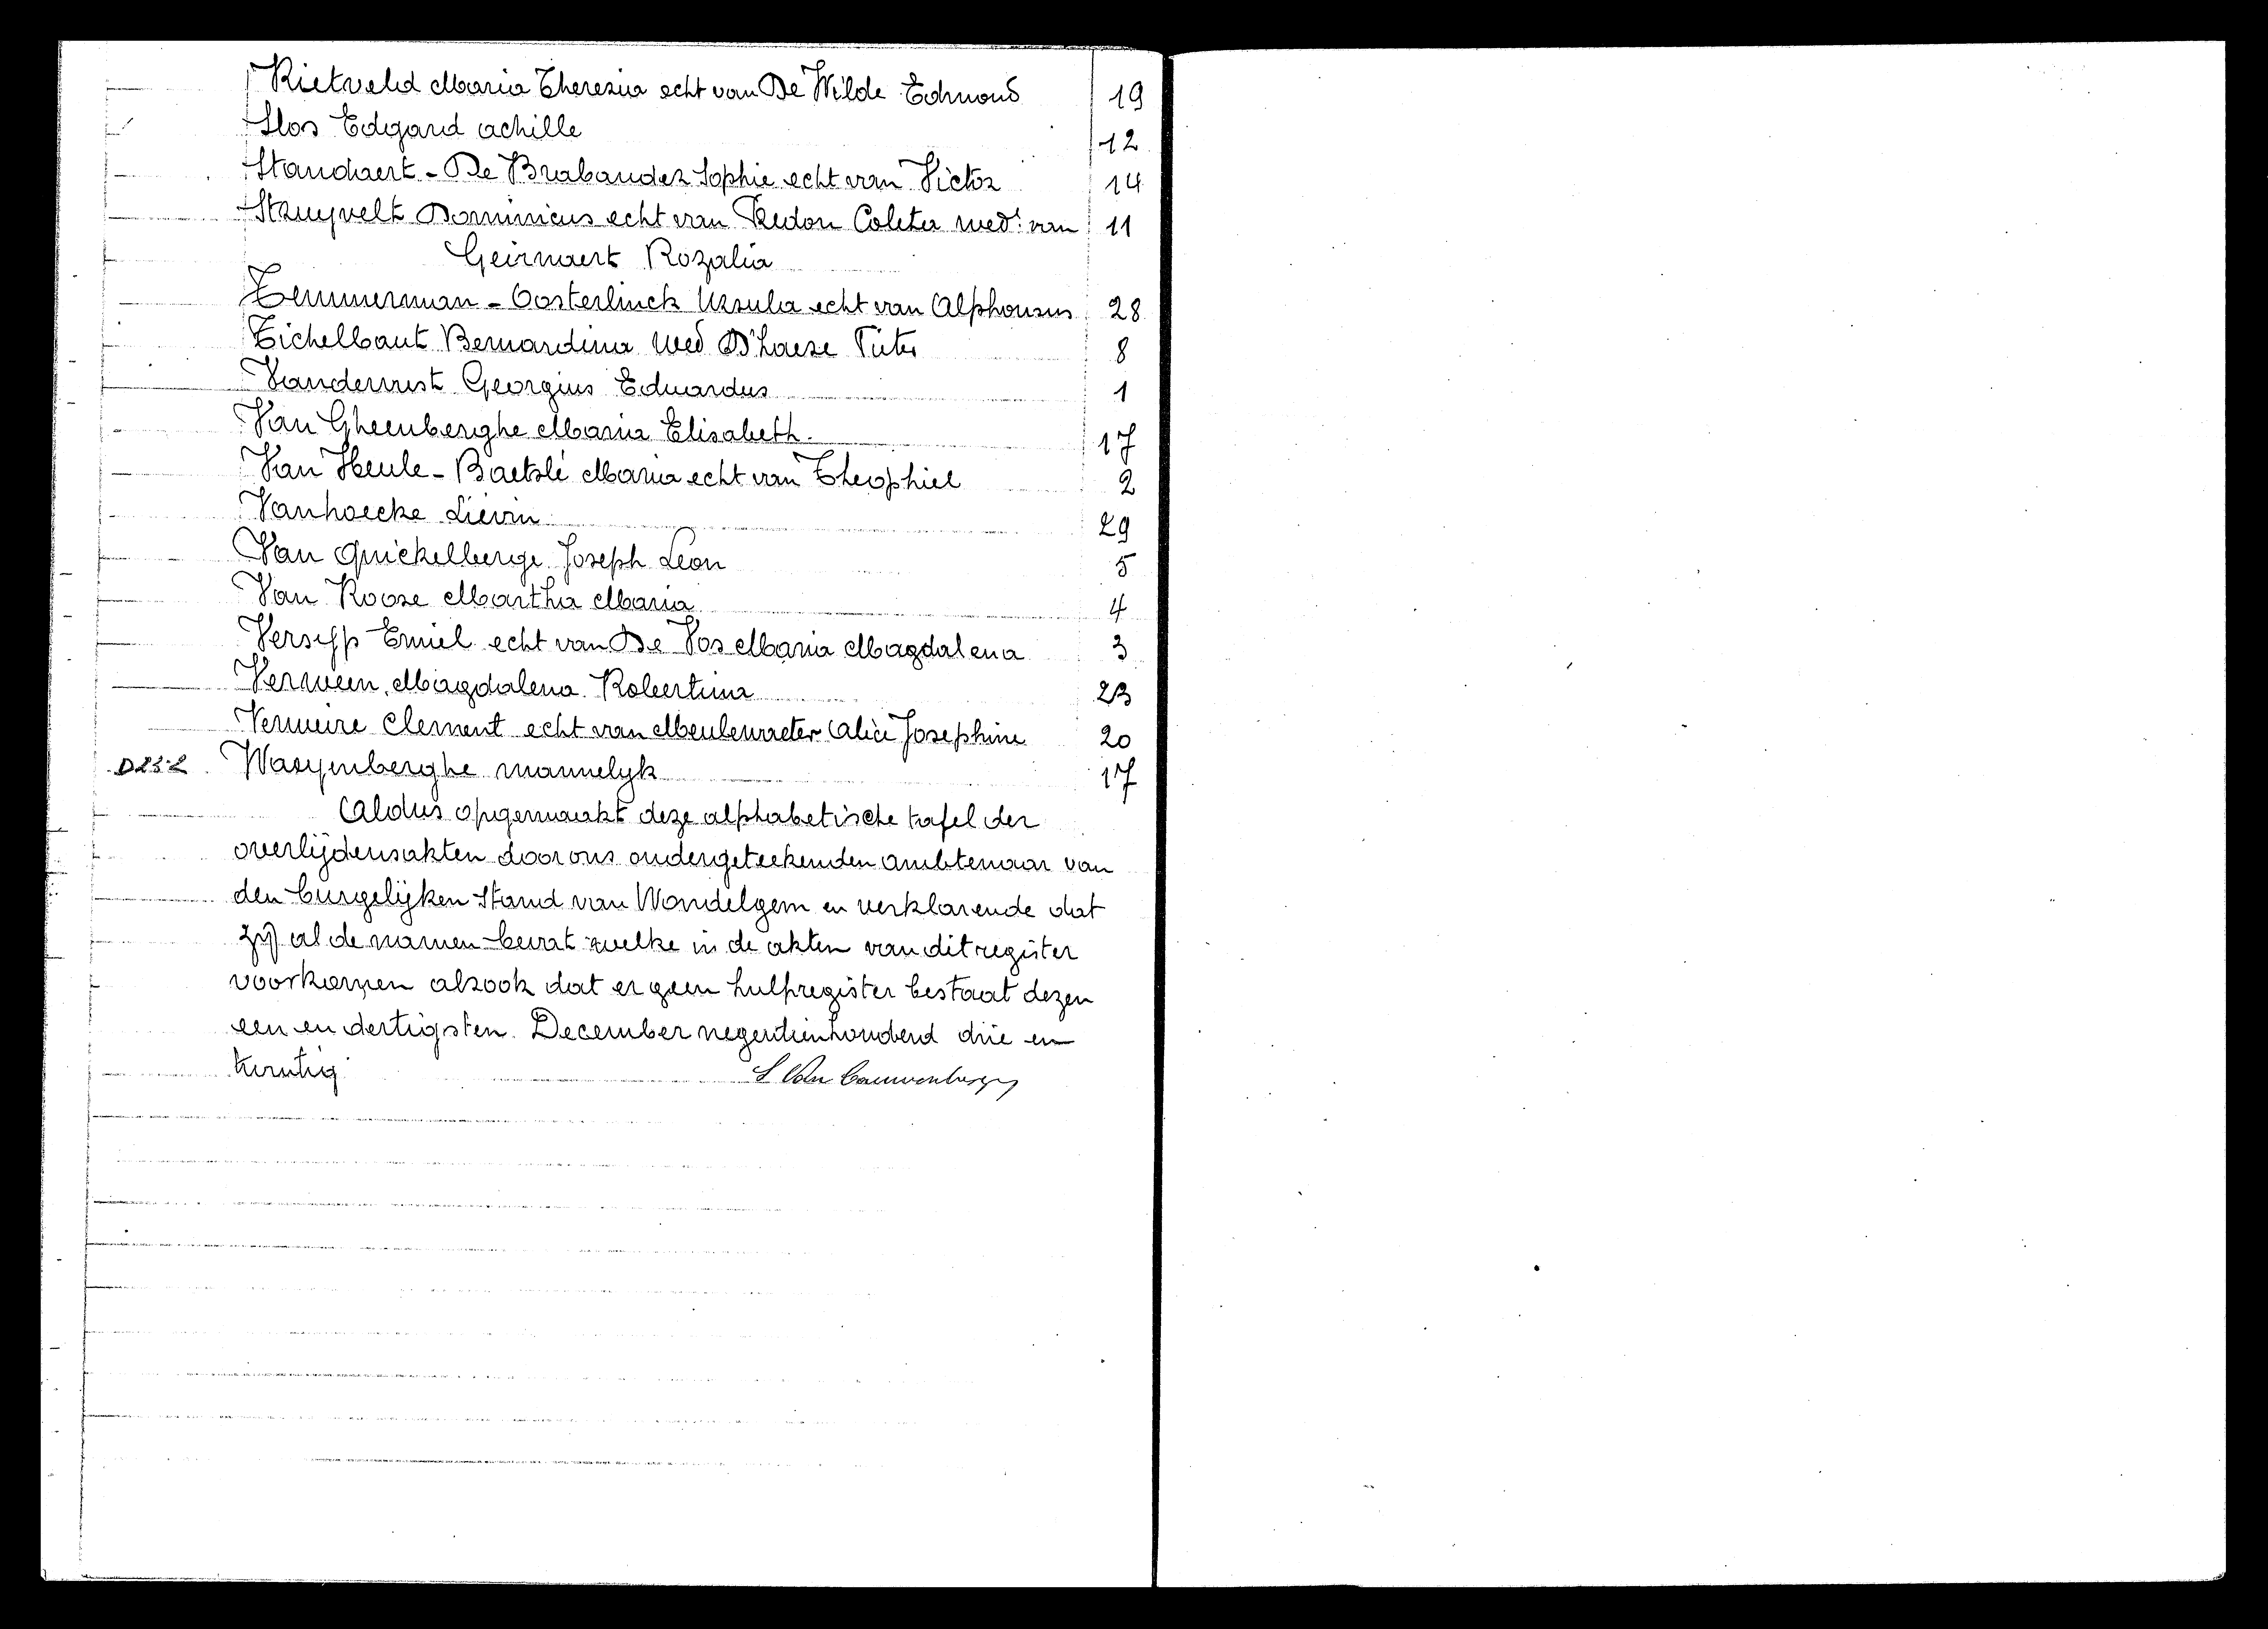 Rietveld Maria Theresia echt van De Wilde Edmond 19
Slos Edgard achille 12
Standaert - De Brabander Sophie echt van Victor 14
Struyvelt Dominicus echt van Redon Coleta wedr van 11
Geirnaert Rozalia
Temmerman - Oosterlinck Ursula echt van Alphonsus 28
Tichelbaut Bernardina wed D'haese Pieter 8
Vandervust Georgius Eduardus 1
Van Gheenberghe Maria Elisabeth 17
Van Heule - Baetslé Maria echt van Theophiel 2
Vanhoecke Liévin 29
Van Quickelberge Joseph Leon 5
Van Rooze Martha Maria 4
Versyp Emiel echt van De Vos Maria Magdalena 3
Verween Magdalena Robertina 23
Vermeire Clement echt van Meulewaeter Alice Josephine 20
Wasymberghe mannelyk 17
Aldus opgemaakt deze alphabetische tafel der
overlijdensakten door ons ondergeteekenden ambtenaar van
den burgelijken Stand van Wondelgem en verklarende dat
zij al de namen bevat welke in de akten van dit register
voorkomen alsook dat er geen hulpregister bestaat dezen
een en dertigsten December negentienhonderd drie en
twintig L Van Cauwenberghe